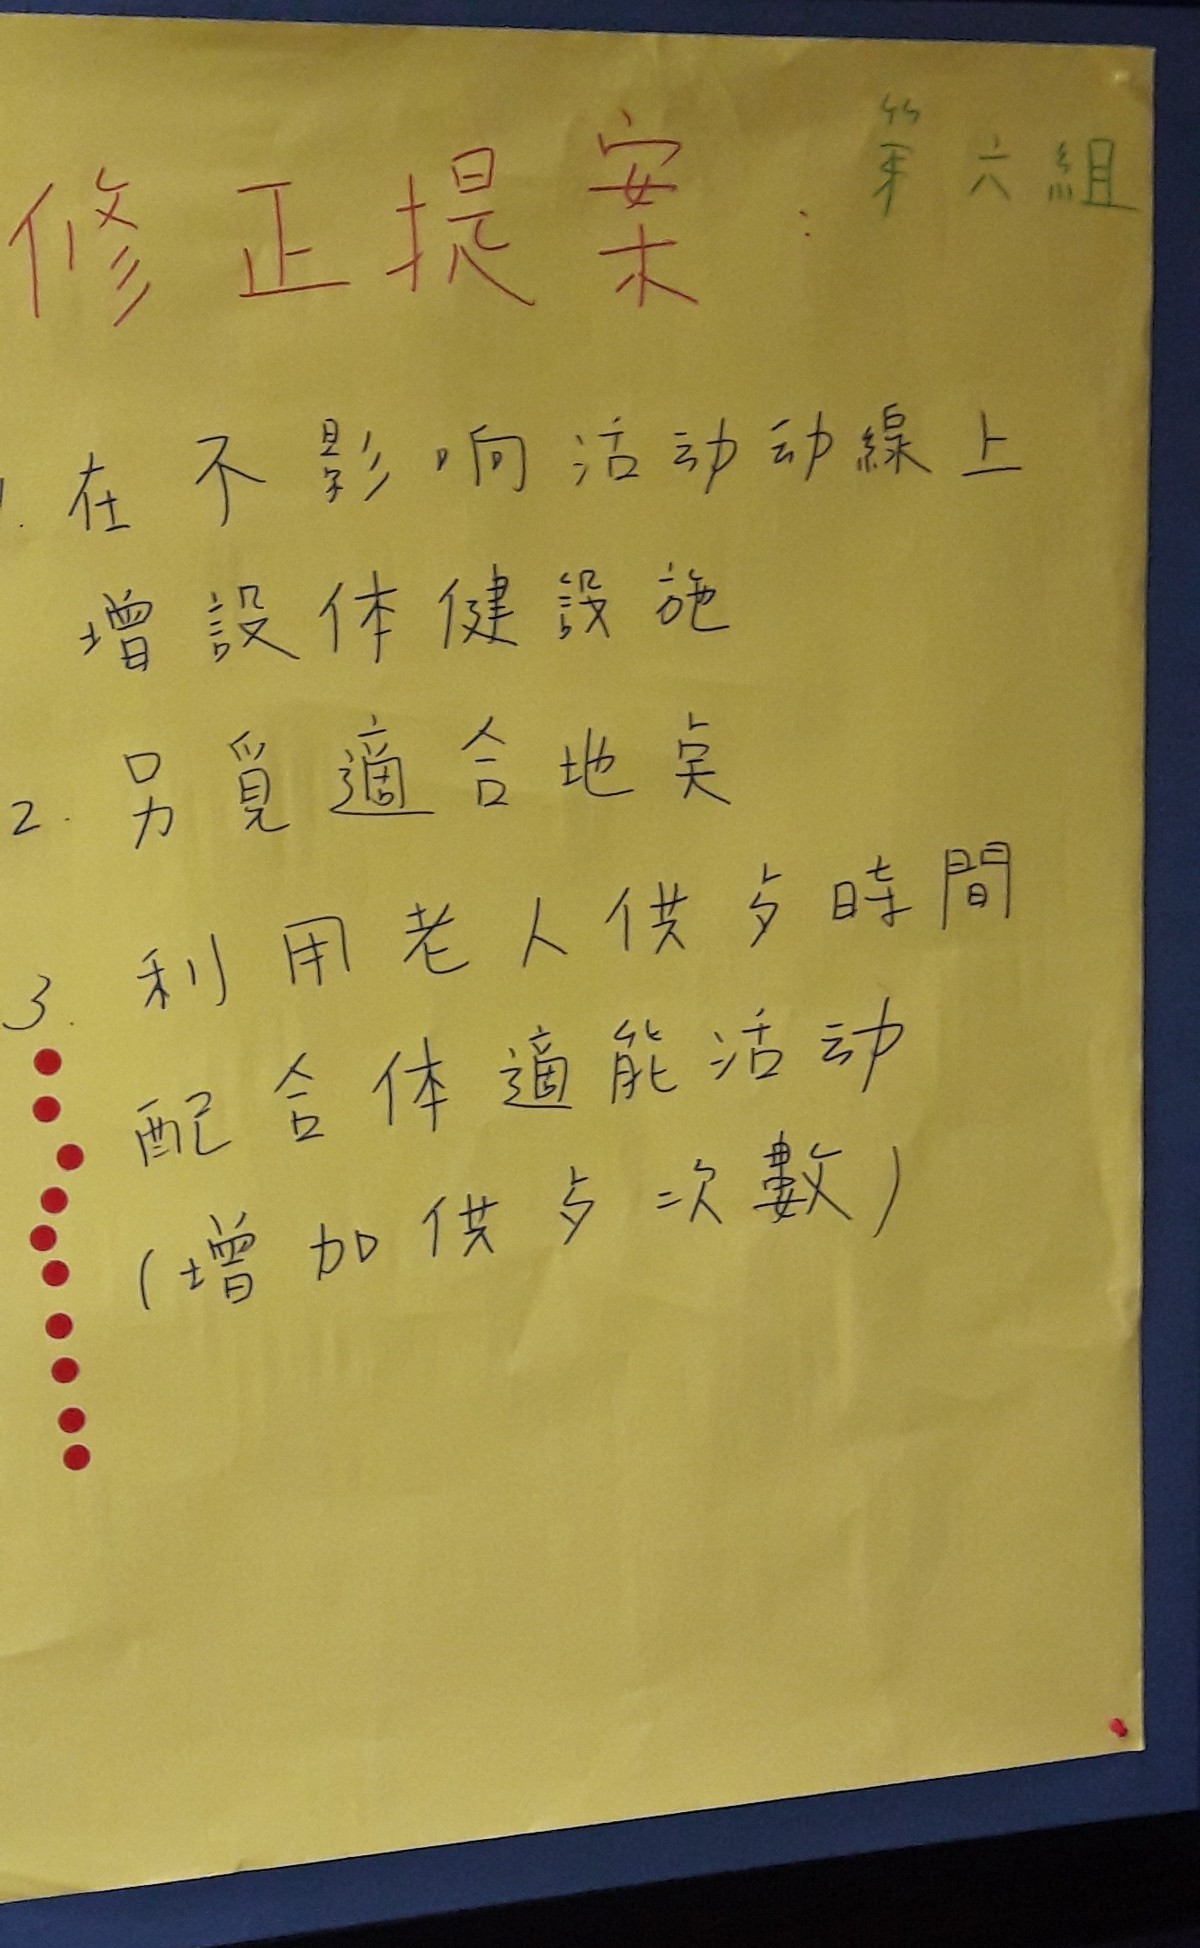 第六組
修正提案:
1. 在不影响活动动線上
增設体健設施
2. 另覓適合地奌
3. 利用老人供歺時間
配合体適能活动
(增加供歺次數)